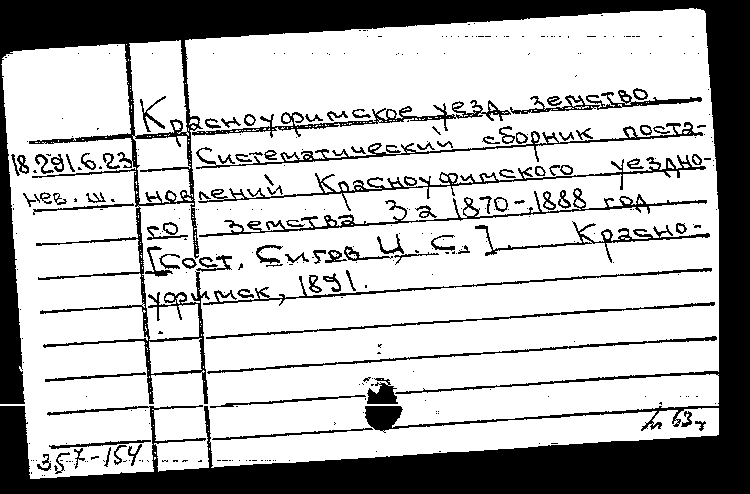 Красноуфимское уезд. земство.
18.291.6.23 Систематический сборник поста-
нев. ш. новлений Красноуфимского уездно-
го земства за 1870-1888 год.
[Сост. Сигов И. С.]. Красно-
уфимск, 1891.
63
357-154